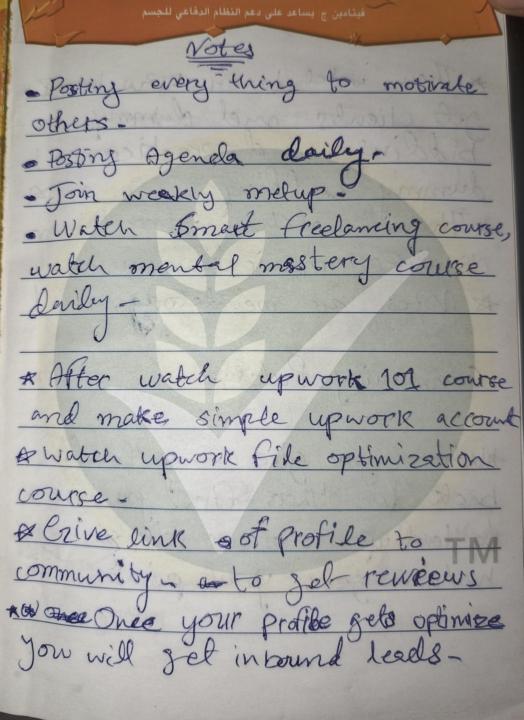 فيتامين ج يساعد على دعم النظام الدفاعي للجسم
Notes
• Posting every thing to motivate
others.
• Posting Agenda daily.
• Join weakly metup.
• Watch Smart freelancing course,
watch mental mastery course
daily-
* After watch upwork 101 course
and make simple upwork account
* Watch upwork file optimization
course.
* Give link of profile to
community. to get reweews
* Once your profile gets optimize
you will get inbound leads-
TM